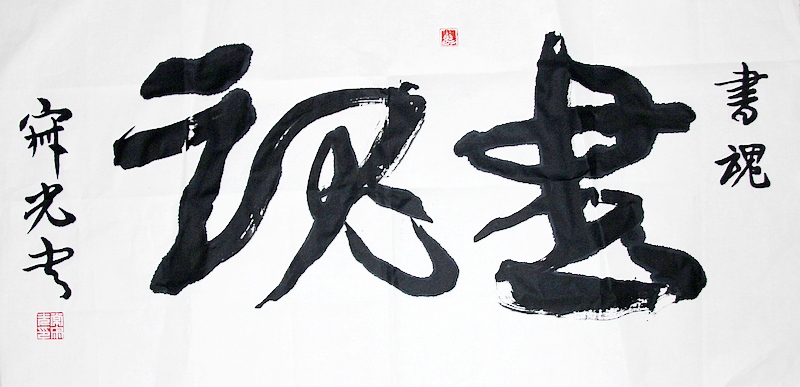 書魂
書魂
光书